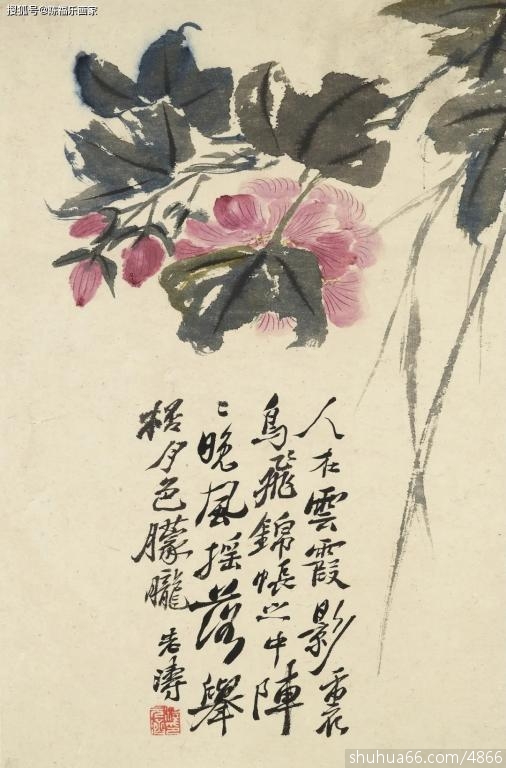 搜狐号@陈福乐画家
人在雲霞影裏
鳥飛錦帳之中陣
〻晚風搖落舉
月色朦朧 老濤
shuhua66.com/4866